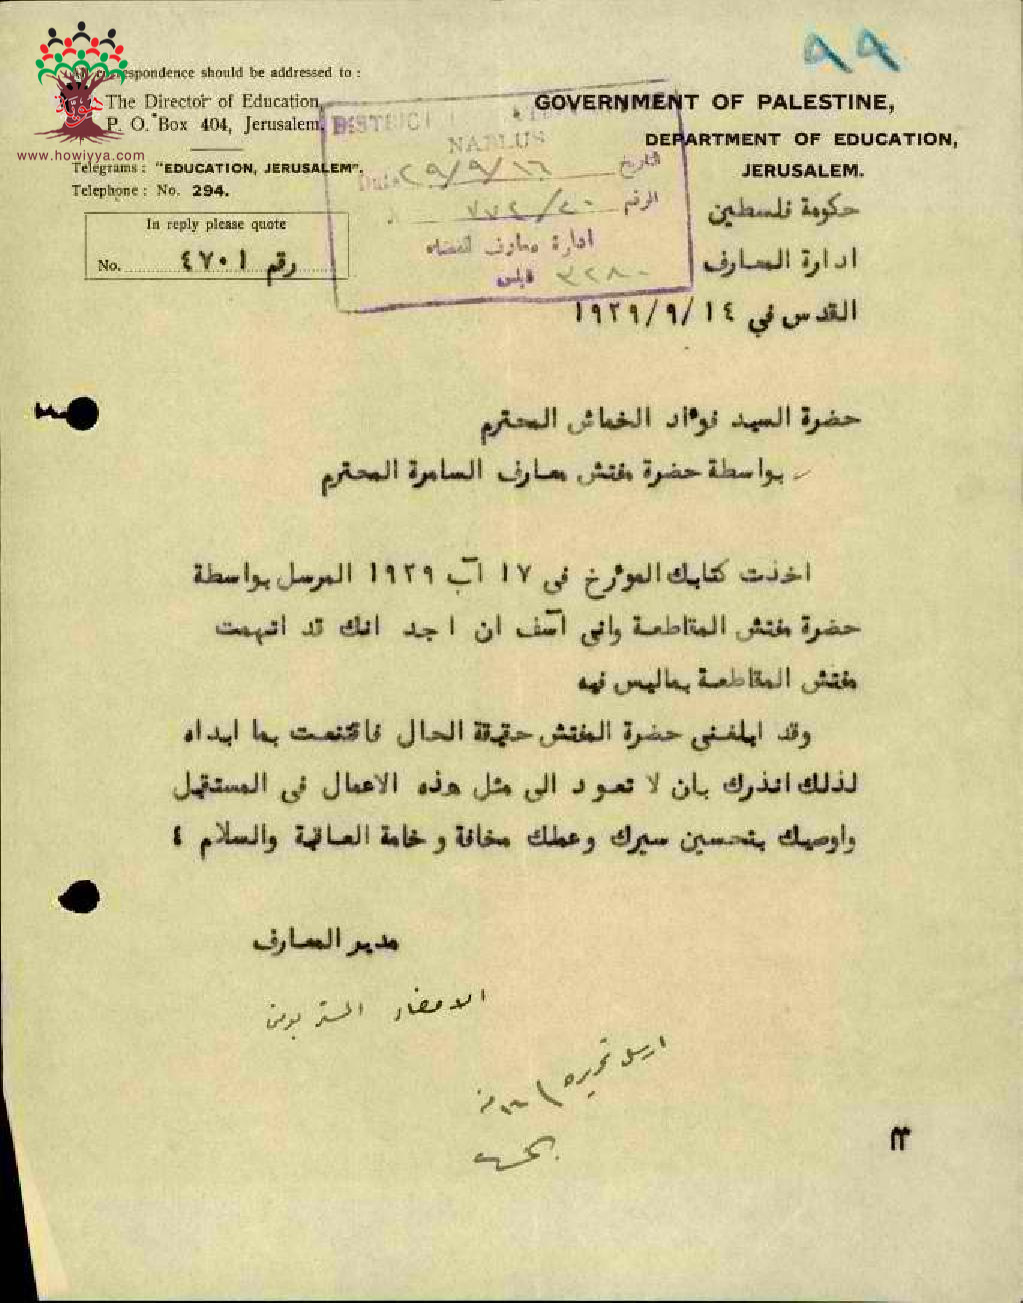 ٩٩
All correspondence should be addressed to :
The Director of Education,
P. O. Box 404, Jerusalem.
Telegrams : "EDUCATION, JERUSALEM".
Telephone : No. 294.
In reply please quote
No. رقم ٤٧٠١
GOVERNMENT OF PALESTINE,
DEPARTMENT OF EDUCATION,
JERUSALEM.
www.howiyya.com
DISTRICT
NABLUS
Date ٢٩/٩/١٦ التاريخ
الرقم
ادارة معارف
نابلس ٣٢٨٠
حكومة فلسطين
ادارة المعارف
القدس في ١٤/٩/١٩٢٩
حضرة السيد فوءاد الخماش المحترم
بواسطة حضرة مفتش معارف السامرة المحترم
اخذت كتابك الموءرخ في ١٧ آب ١٩٢٩ المرسل بواسطة
حضرة مفتش المقاطعة واني آسف ان اجد انك قد اتهمت
مفتش المقاطعة بماليس فيه
وقد ابلغني حضرة المفتش حقيقة الحال فاقتنعت بما ابداه
لذلك انذرك بان لا تعود الى مثل هذه الاعمال في المستقبل
واوصيك بتحسين سيرك وعملك مخافة وخامة العاقبة والسلام ٤
مدير المعارف
الامضاء المستر بومن
ارسل تحريره
٢٣